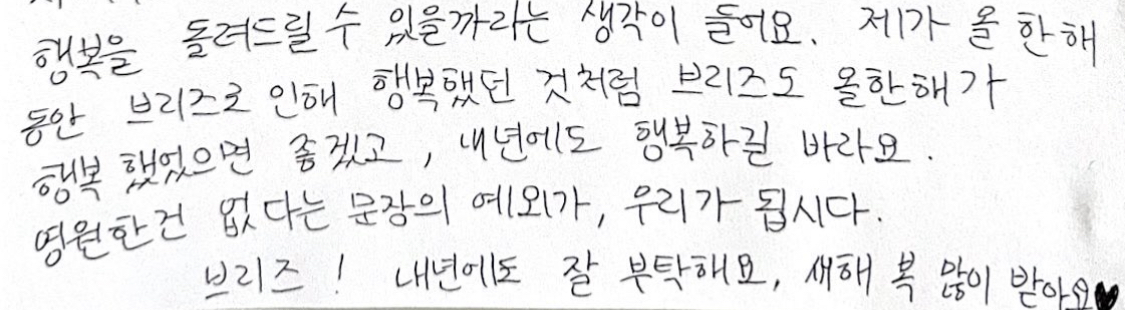 행복을 돌려드릴 수 있을까라는 생각이 들어요. 제가 올 한해
동안 브리즈로 인해 행복했던 것처럼 브리즈도 올한해가
행복 했었으면 좋겠고, 내년에도 행복하길 바라요.
영원한건 없다는 문장의 예외가, 우리가 됩시다.
브리즈! 내년에도 잘 부탁해요, 새해 복 많이 받아요♥